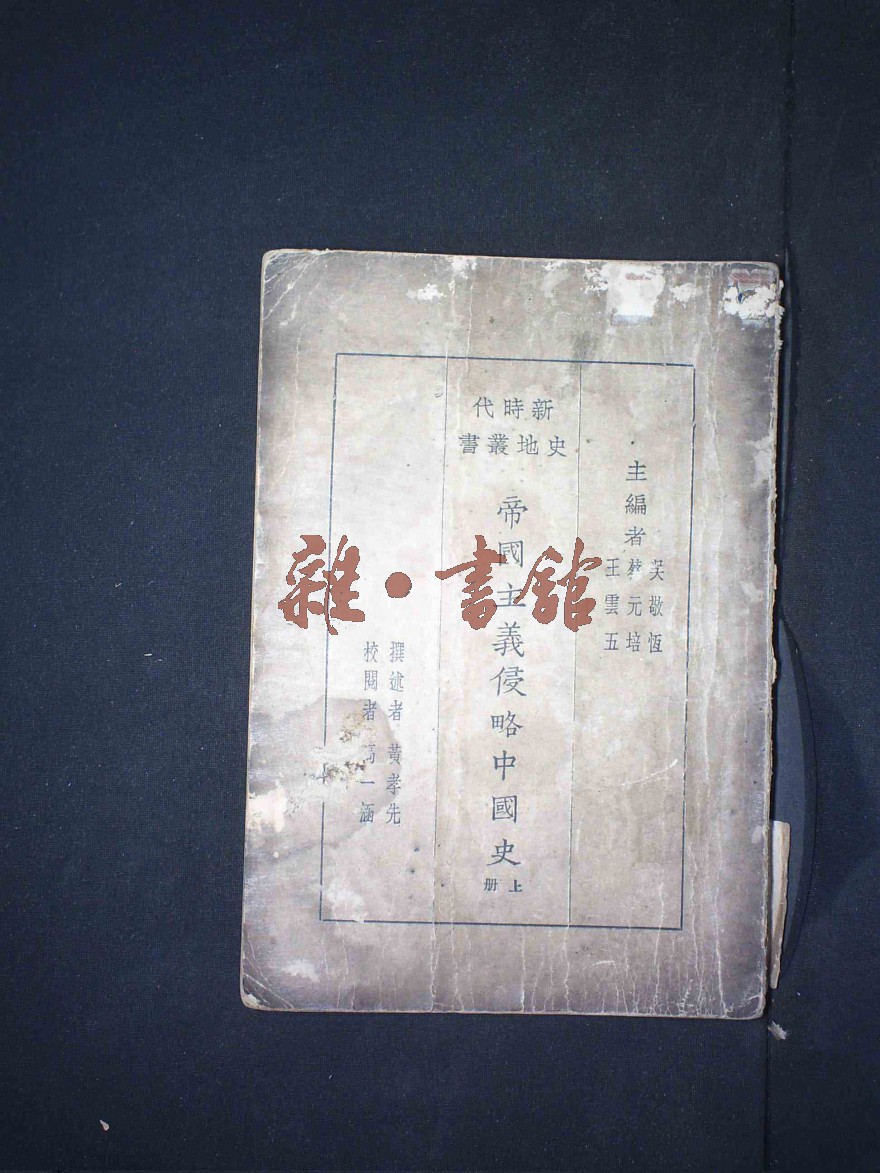 主編者
吳敬恆
蔡元培
王雲五
新時代
史地叢書
帝國主義侵略中國史
上冊
撰述者 黃孝先
校閱者 高一涵
雜·書館